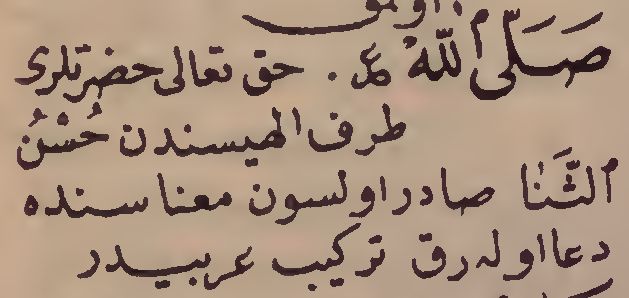 صَلَّى اللّٰهُ ع . حق تعالى حضرتلری
طرف الهیسندن حُسْنُ
الثَّنا صادر اولسون معناسنده
دعا اوله رق تركیب عربیدر